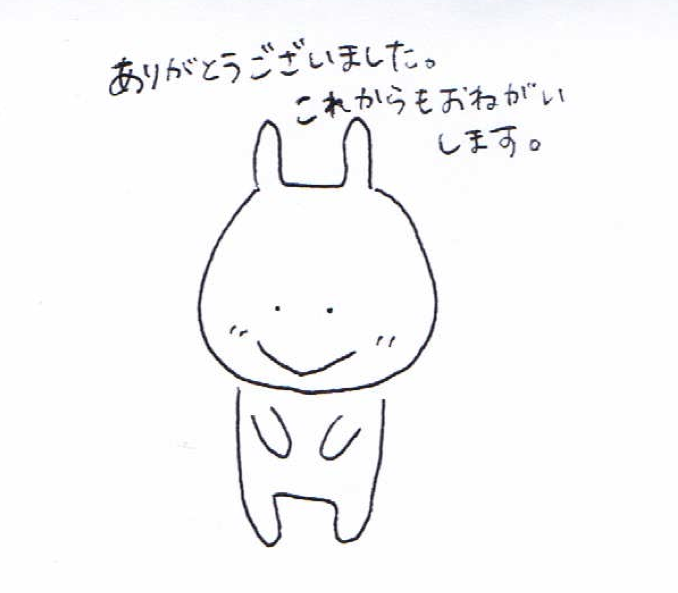 ありがとうございました。
これからもおねがい
します。